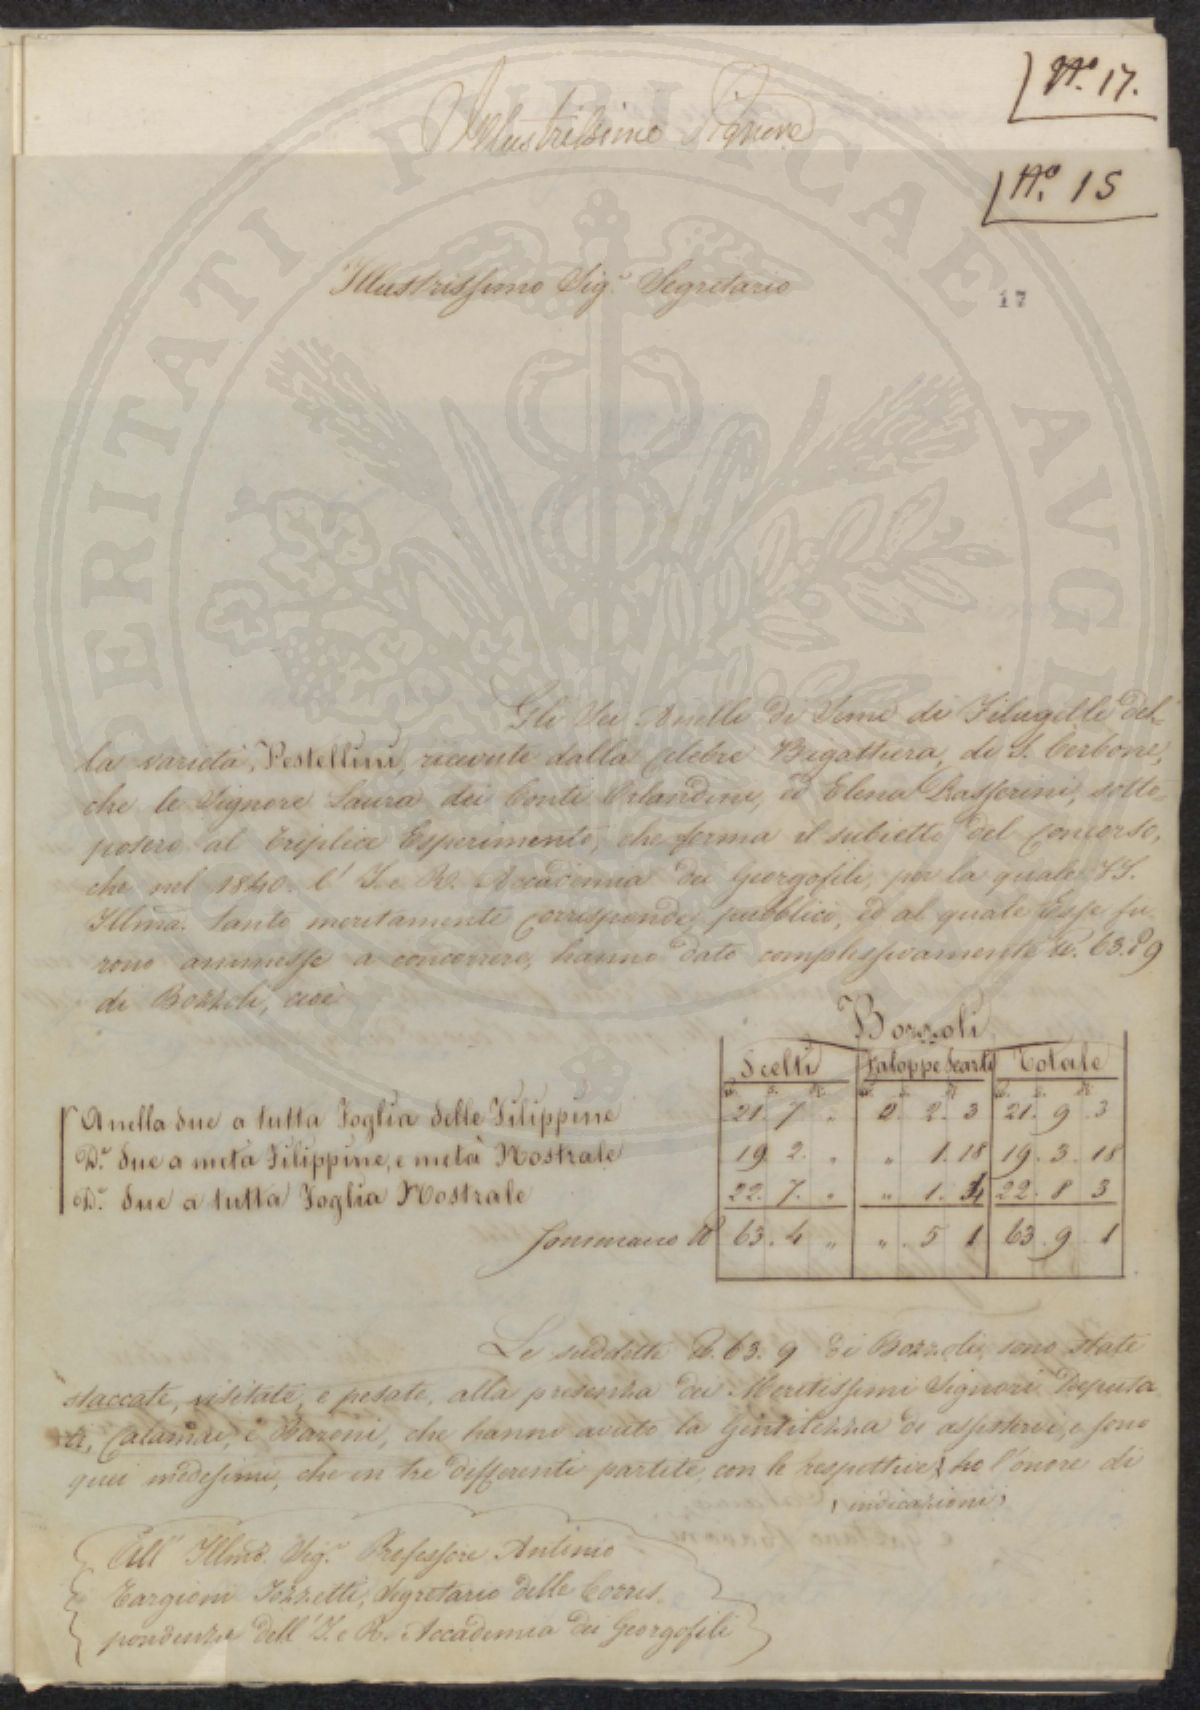 N.º 17.
Illustrissimo Signore
N.º 15
Illustrissimo Sig.r Segretario
17
Gli Sei Anelli di Seme di Filugelli del-
la varietà, Pestellini, ricevute dalla celebre Bigattiera, di S. Cerbone,
che le Signore Laura dei Conti Orlandini, ed Elena Passerini, sotto-
posero al triplice Esperimento, che forma il subietto del Concorso,
che nel 1840. l' I. e R. Accademia dei Georgofili, per la quale VS.
Illma. tanto meritamente corrisponde, pubblicò, ed al quale Esse fu-
rono ammesse a concorrere, hanno dato complessivamente lb. 63. 9
di Bozzoli, cioè
Bozzoli
Scelti Faloppe Scarti Totale
Anella due a tutta Foglia delle Filippine 21. 7 „ 0. 2. 3 21. 9. 3
D.e due a metà Filippine, e metà Nostrale 19 2. „ „ 1. 18 19. 3. 18
D.e due a tutta Foglia Nostrale 22. 7. „ „ 1. 22. 8 3
Sommano lb 63. 4 „ „. 5 1 63. 9. 1
Le suddette lb. 63. 9 di Bozzoli, sono state
staccate, visitate, e pesate, alla presenza dei Meritissimi Signori Deputa
ti, Calamai, e Baroni, che hanno avuto la gentilezza di assistervi, e sono
quei medesimi, che in tre differenti partite, con le respettive, ho l'onore di
indicazioni,
All' Illmo. Sig.r Professore Antonio
Targioni Tozzetti, Segretario delle Corris-
pondenze dell' I. e R. Accademia dei Georgofili
PERITATI PUBLICAE AVGE